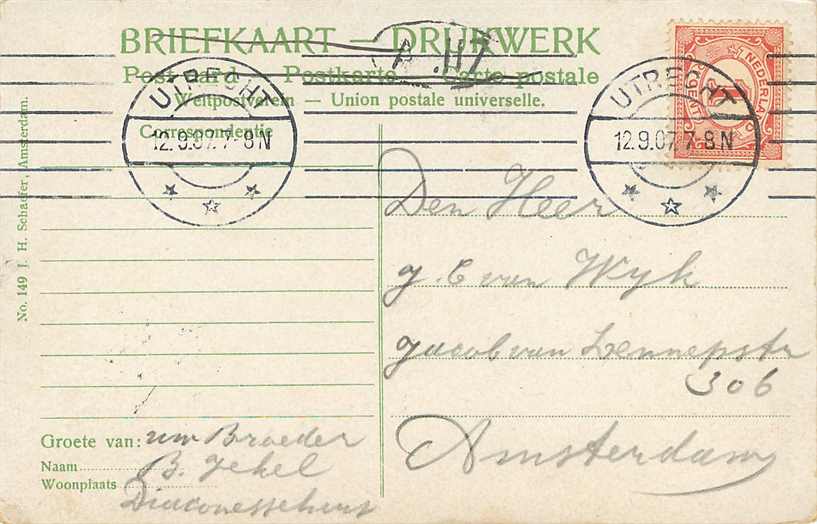 BRIEFKAART — DRUKWERK
Postcard — Postkarte — Carte postale
Weltpostverein — Union postale universelle.
Correspondentie
UTRECHT
12.9.07.7-8N
UTRECHT
12.9.07.7-8N
NEDERLAND
No. 149 J. H. Schaefer, Amsterdam.
Den Heer
J. C van Wyk
Jacob van Lennepstr
306
Amsterdam
Groete van: uw Broeder
Naam B. Jekel
Woonplaats Diaconessehuis